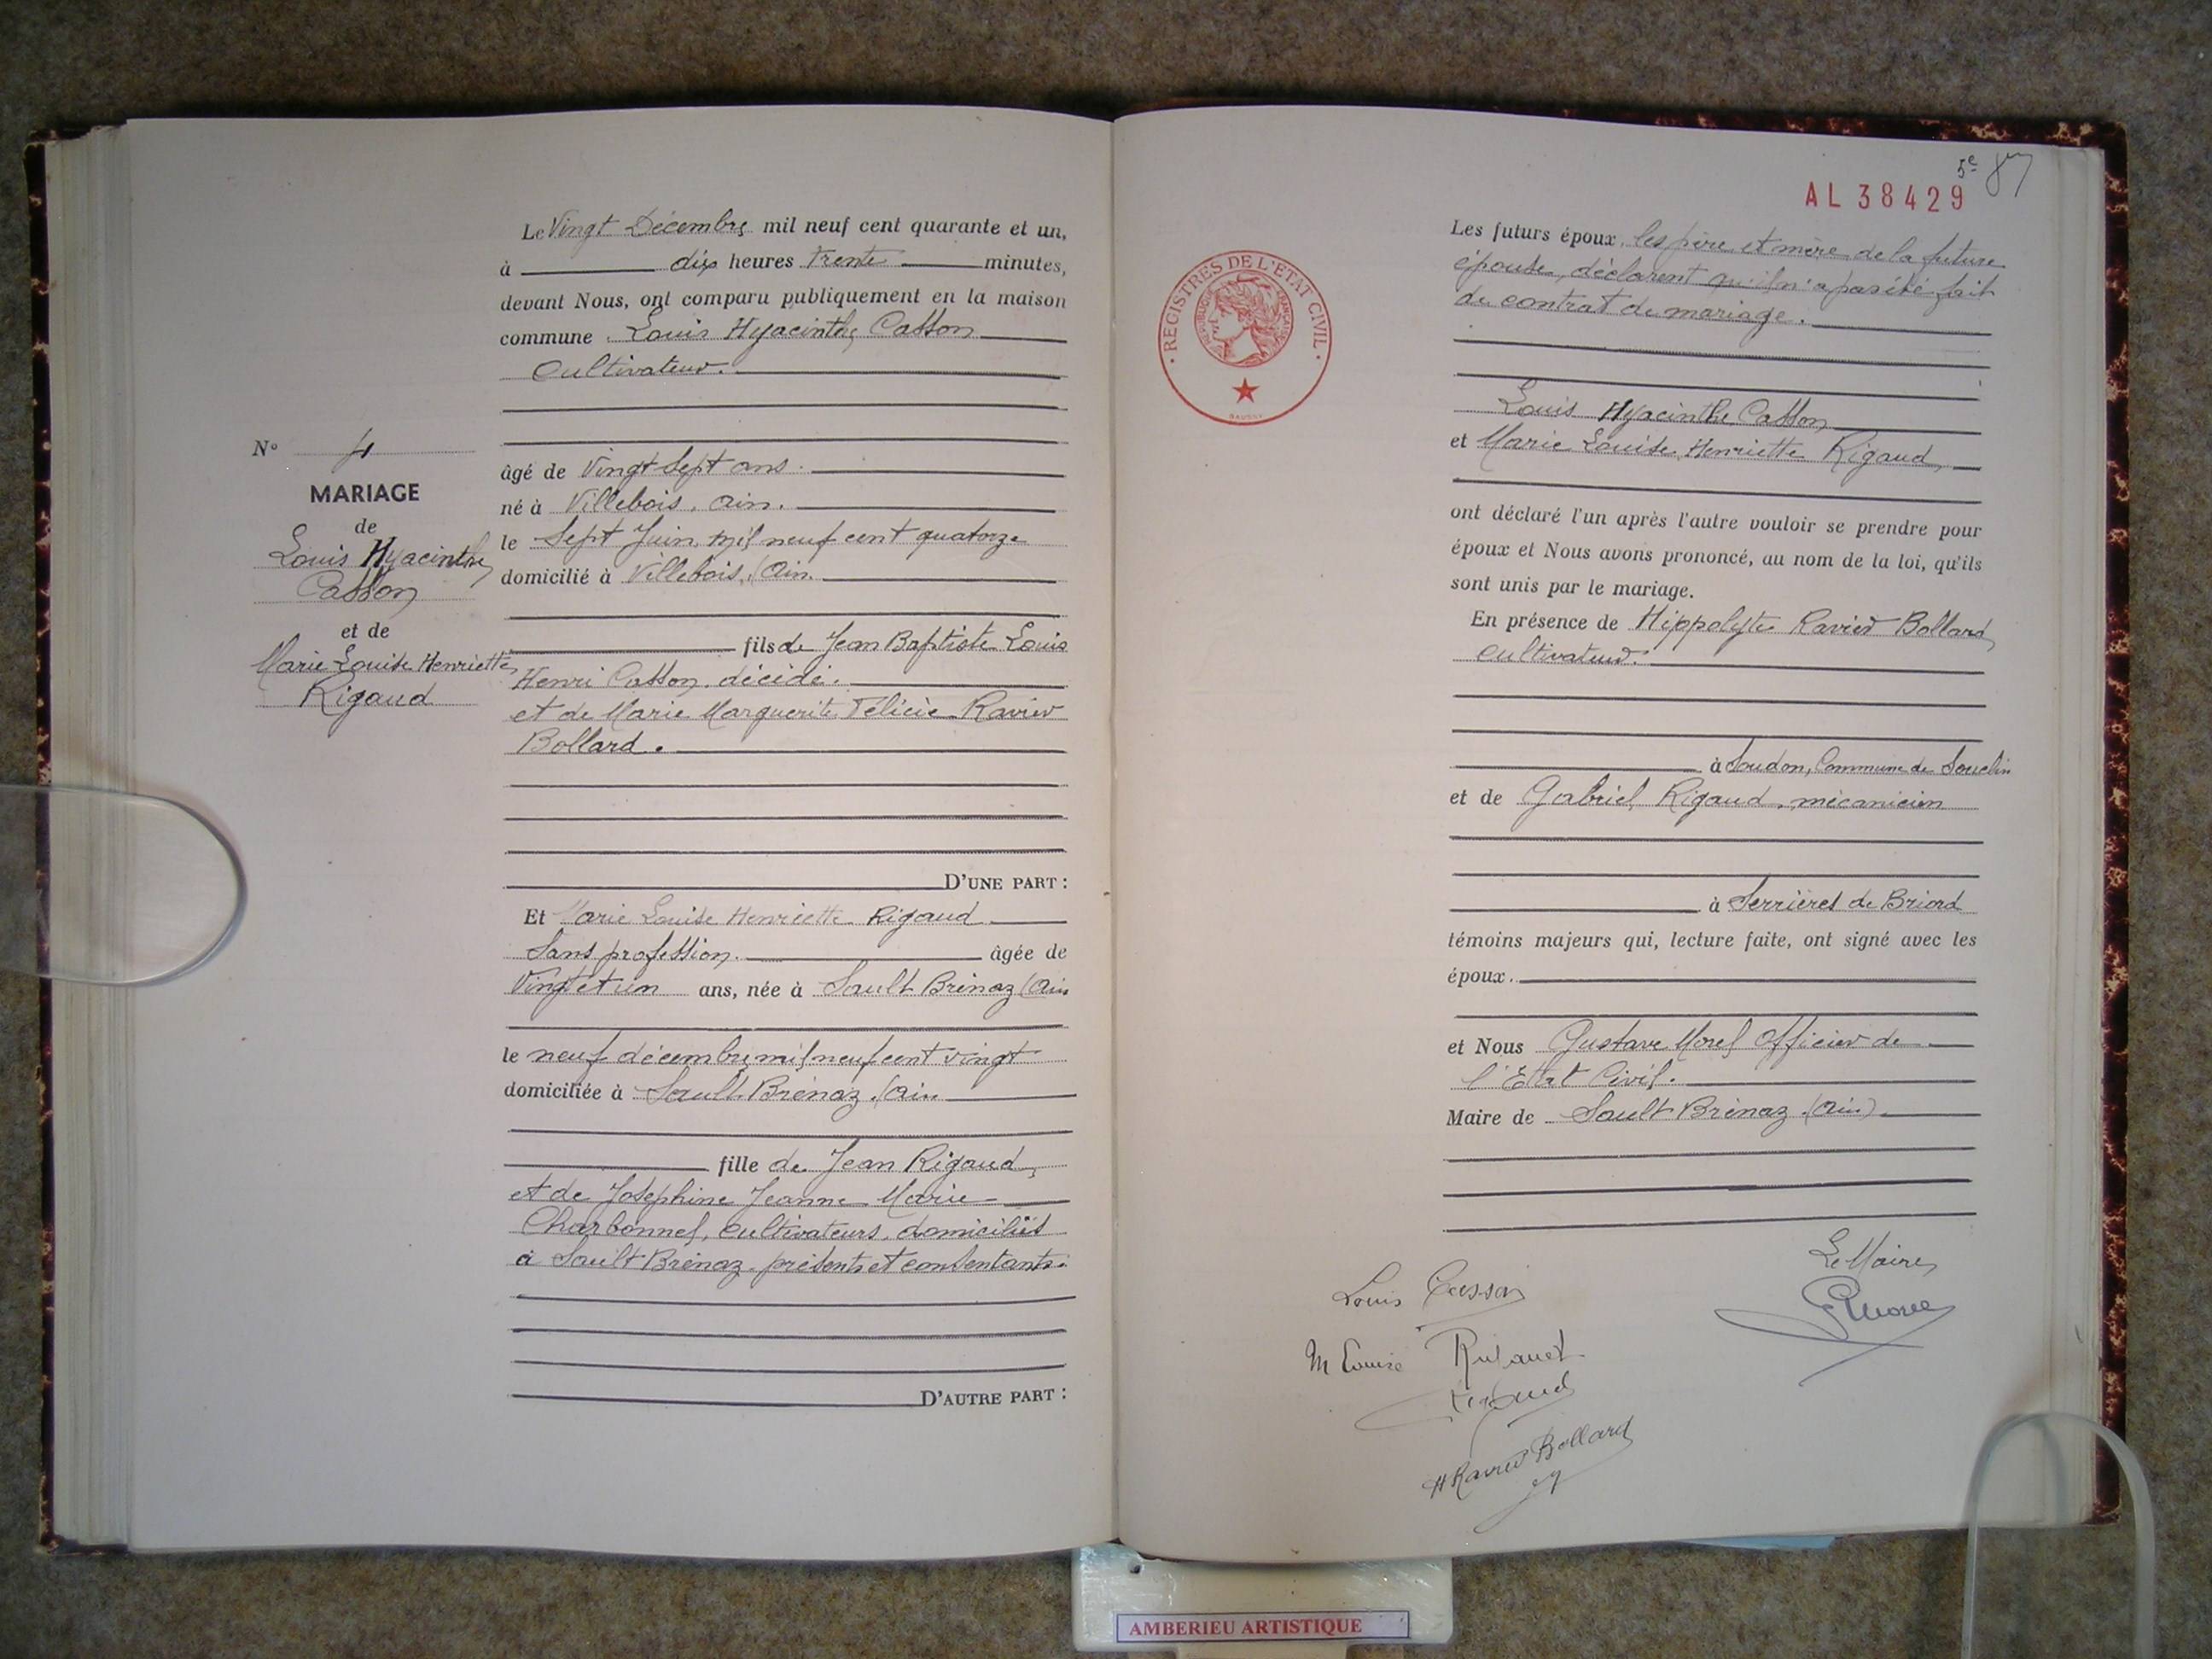 Le Vingt Décembre mil neuf cent quarante et un,
à dix heures Trente minutes,
devant Nous, ont comparu publiquement en la maison
commune Louis Hyacinthe Casson
Cultivateur.
âgé de Vingt Sept ans.
né à Villebois, Ain.
le Sept Juin mil neuf cent quatorze
domicilié à Villebois, (Ain.
fils de Jean Baptiste Louis
Henri Casson, décédé.
et de Marie Marguerite Félicie Ravier
Bollard.
D'UNE PART :
N° 4
MARIAGE
de
Louis Hyacinthe
Casson
et de
Marie Louise Henriette
Rigaud
Et Marie Louise Henriette Rigaud
Sans profession. âgée de
Vingt et un ans, née à Sault Brénaz (Ain
le neuf décembre mil neuf cent vingt
domiciliée à Sault Brénaz, (Ain.
fille de Jean Rigaud,
et de Joséphine Jeanne Marie
Charbonnel, cultivateurs, domiciliés
à Sault Brénaz, présents et consentants.
D'AUTRE PART :
5e
AL 38429
REGISTRES DE L'ETAT CIVIL
REPUBLIQUE FRANÇAISE
Les futurs époux, les père et mère de la future
épouse, déclarent qu'il n'a pas été fait
de contrat de mariage.
Louis Hyacinthe Casson
et Marie Louise Henriette Rigaud,
ont déclaré l'un après l'autre vouloir se prendre pour
époux et Nous avons prononcé, au nom de la loi, qu'ils
sont unis par le mariage.
En présence de Hippolyte Ravier Bollard
cultivateur.
à Soudon, Commune de Souclin
et de Gabriel Rigaud, mécanicien
à Serrières de Briord
témoins majeurs qui, lecture faite, ont signé avec les
époux.
et Nous Gustave Morel Officier de
l'Etat Civil.
Maire de Sault Brénaz (Ain).
Le Maire,
Louis Casson
M Louise Rigaud
Rigaud
H Ravier Bollard
AMBERIEU ARTISTIQUE